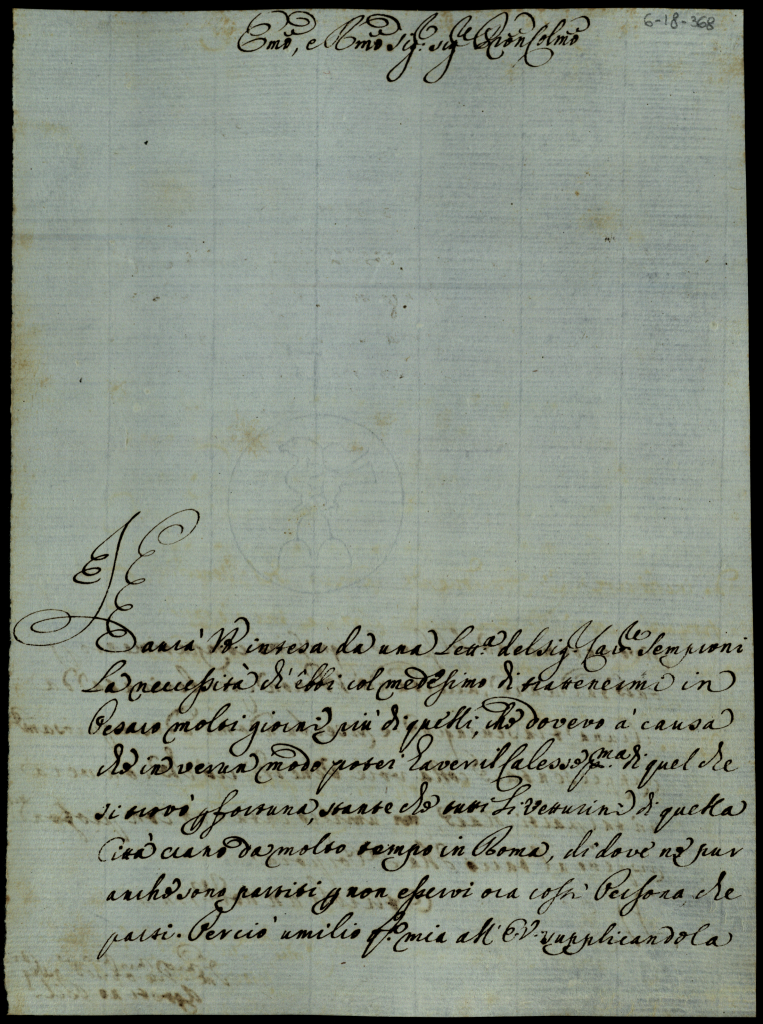 6-18-368
Emo, e Rmo Sig.r Sig.re Pron Colmo
Haurà VE intesa da una Lett.a del Sig.r Cav.re Semproni
la neccessità ch' ebbi col medesimo di trattenermi in
Pesaro molti giorni più di quelli, che dovevo à causa
che in verun modo potei haver il Calesse p.ma di quel che
si trovò p fortuna, stante che tutti li Vetturini di quella
Città erano da molto tempo in Roma, di dove ne pur
anche sono partiti p non esservi ora costì Persona che
parti. Perciò umilio q.ta mia all' E.V. supplicandola